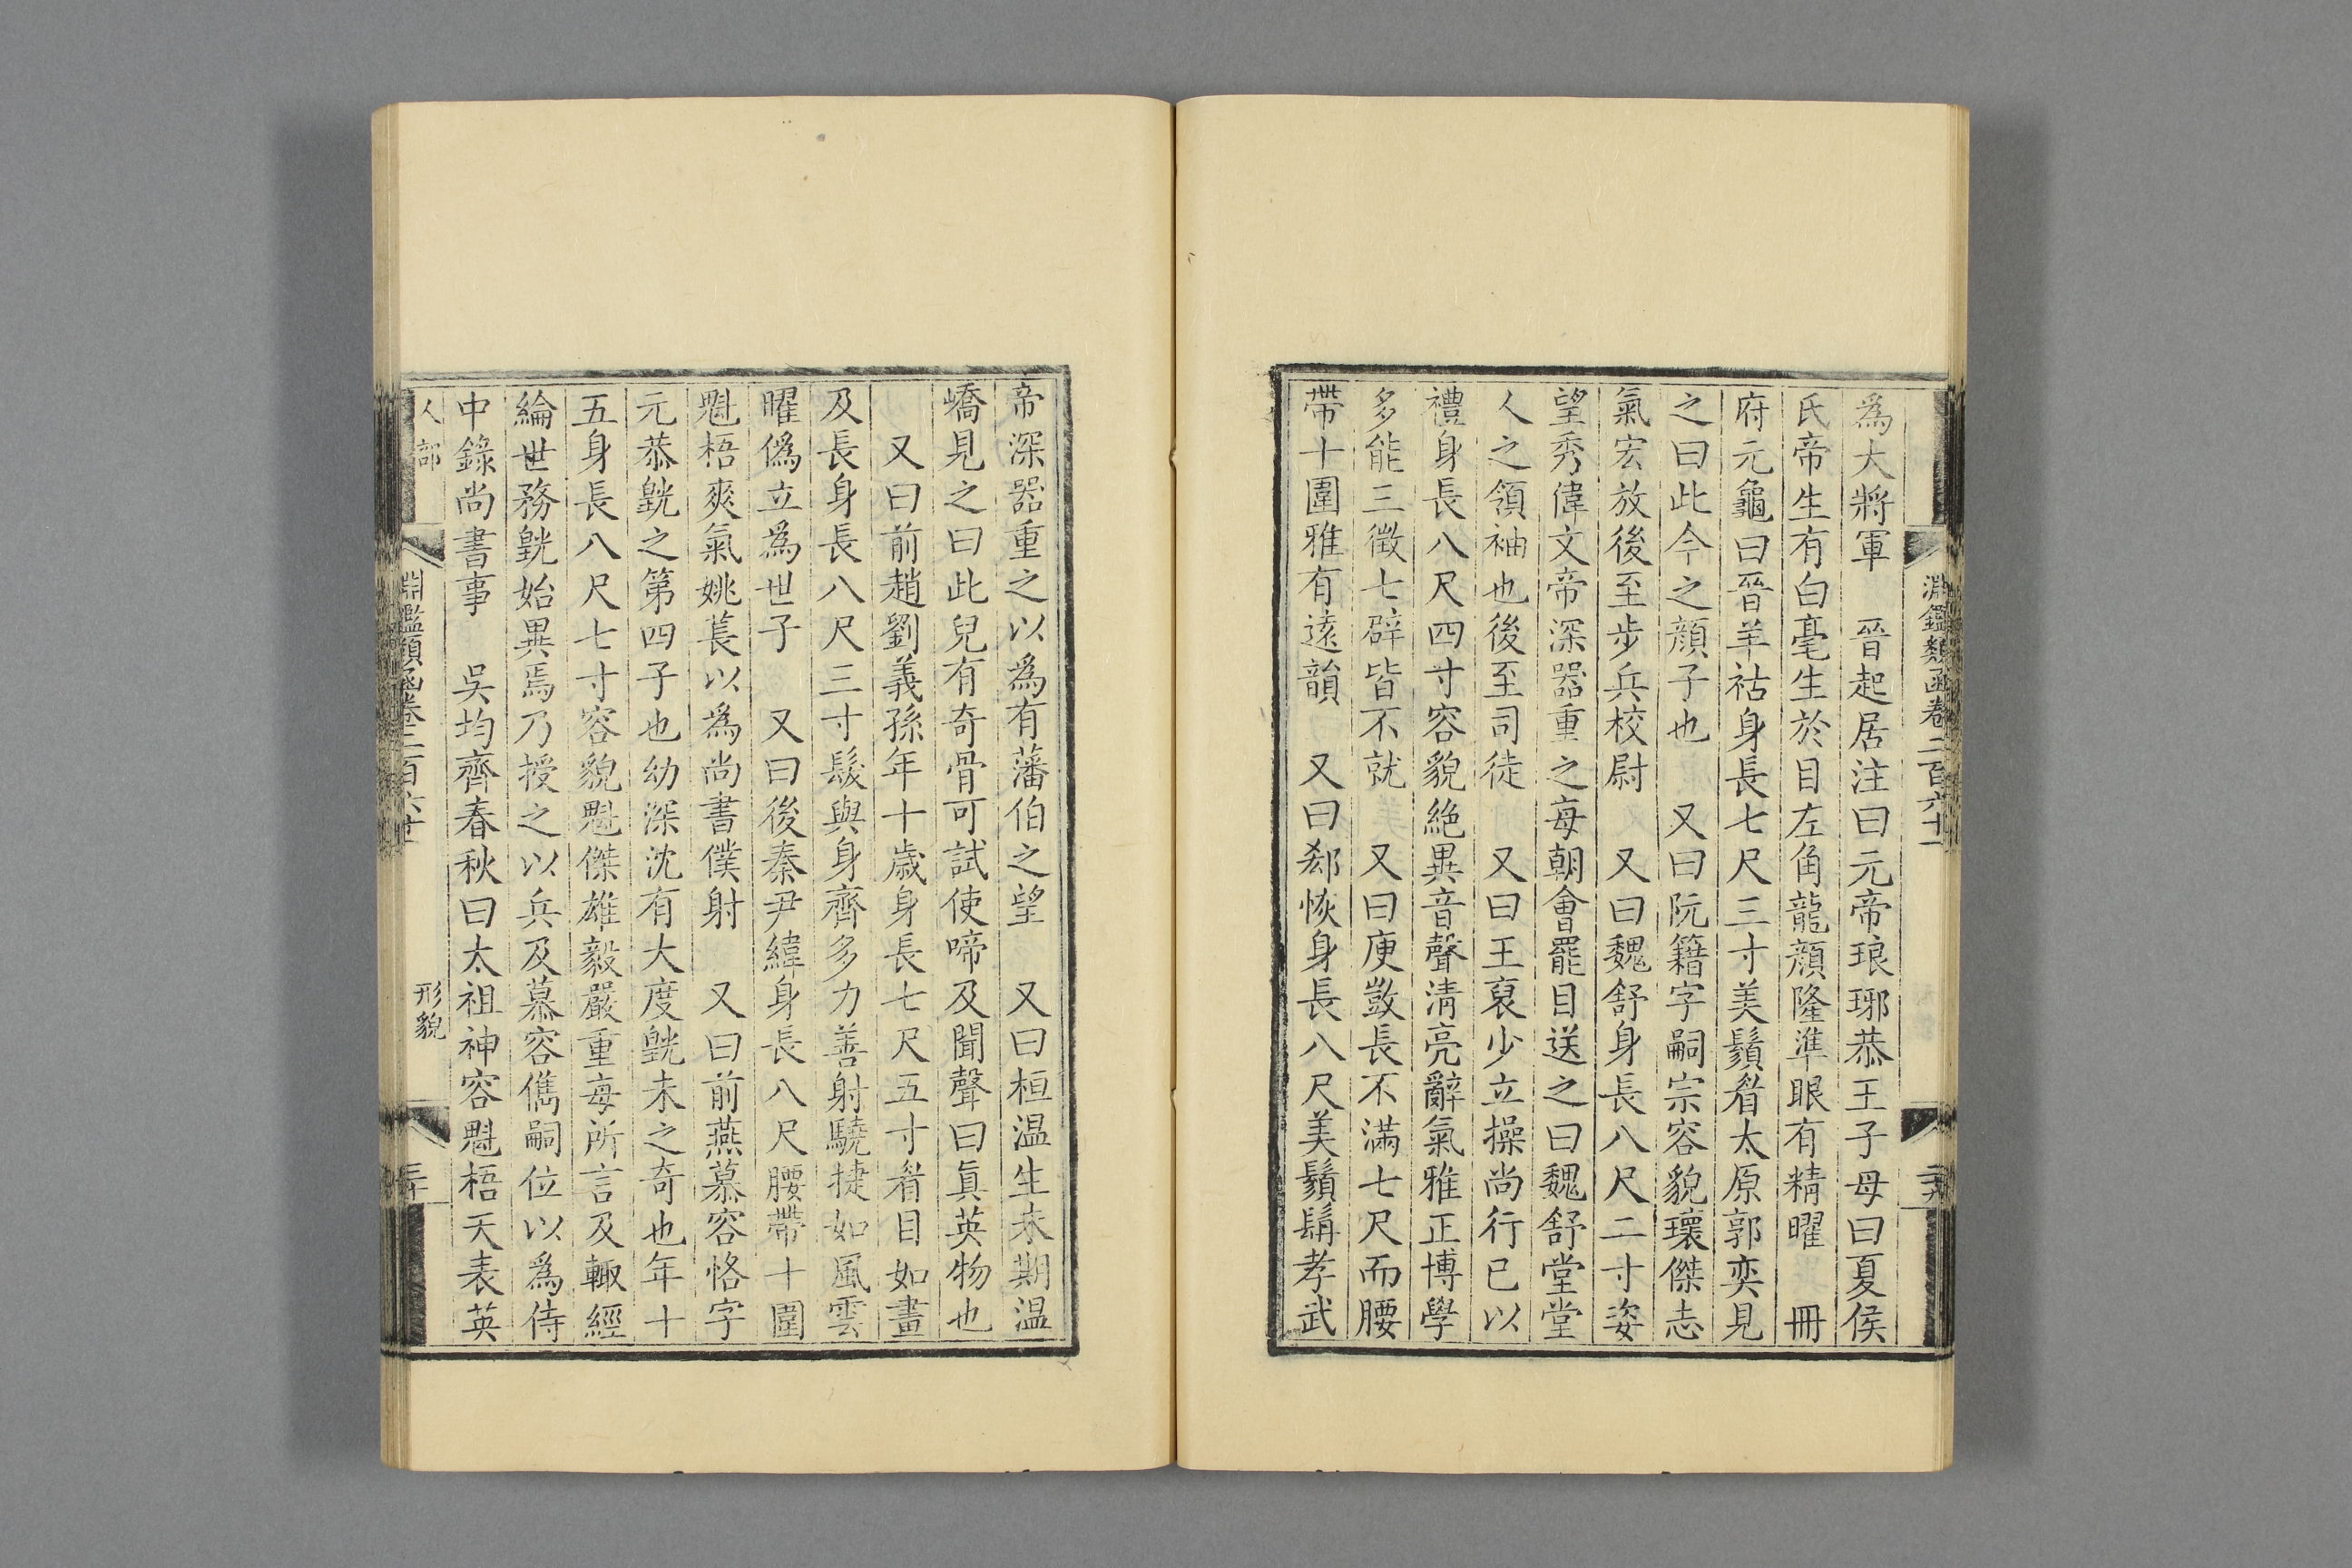 淵鑑類函卷二百六十一
為大將軍　晉起居注曰元帝琅琊恭王子母曰夏侯
氏帝生有白毫生於目左角龍顏隆準眼有精曜　冊
府元龜曰晉羊祜身長七尺三寸美鬚眉太原郭奕見
之曰此今之顏子也　又曰阮籍字嗣宗容貌瓌傑志
氣宏放後至步兵校尉　又曰魏舒身長八尺二寸姿
望秀偉文帝深器重之每朝會罷目送之曰魏舒堂堂
人之領袖也後至司徒　又曰王裒少立操尚行已以
禮身長八尺四寸容貌絕異音聲清亮辭氣雅正博學
多能三徵七辟皆不就　又曰庾敳長不滿七尺而腰
帶十圍雅有遠韻　又曰郄恢身長八尺美鬚髯孝武
帝深器重之以為有藩伯之望　又曰桓溫生未期溫
嶠見之曰此兒有奇骨可試使啼及聞聲曰真英物也
又曰前趙劉義孫年十歲身長七尺五寸眉目如畫
及長身長八尺三寸髮與身齊多力善射驍捷如風雲
曜僞立為世子　又曰後秦尹緯身長八尺腰帶十圍
魁梧爽氣姚萇以為尚書僕射　又曰前燕慕容恪字
元恭皝之第四子也幼深沈有大度皝未之奇也年十
五身長八尺七寸容貌魁傑雄毅嚴重每所言及輒經
綸世務皝始異焉乃授之以兵及慕容儁嗣位以為侍
中錄尚書事　吳均齊春秋曰太祖神容魁梧天表英
人部　淵鑑類函卷二百六十　形貌